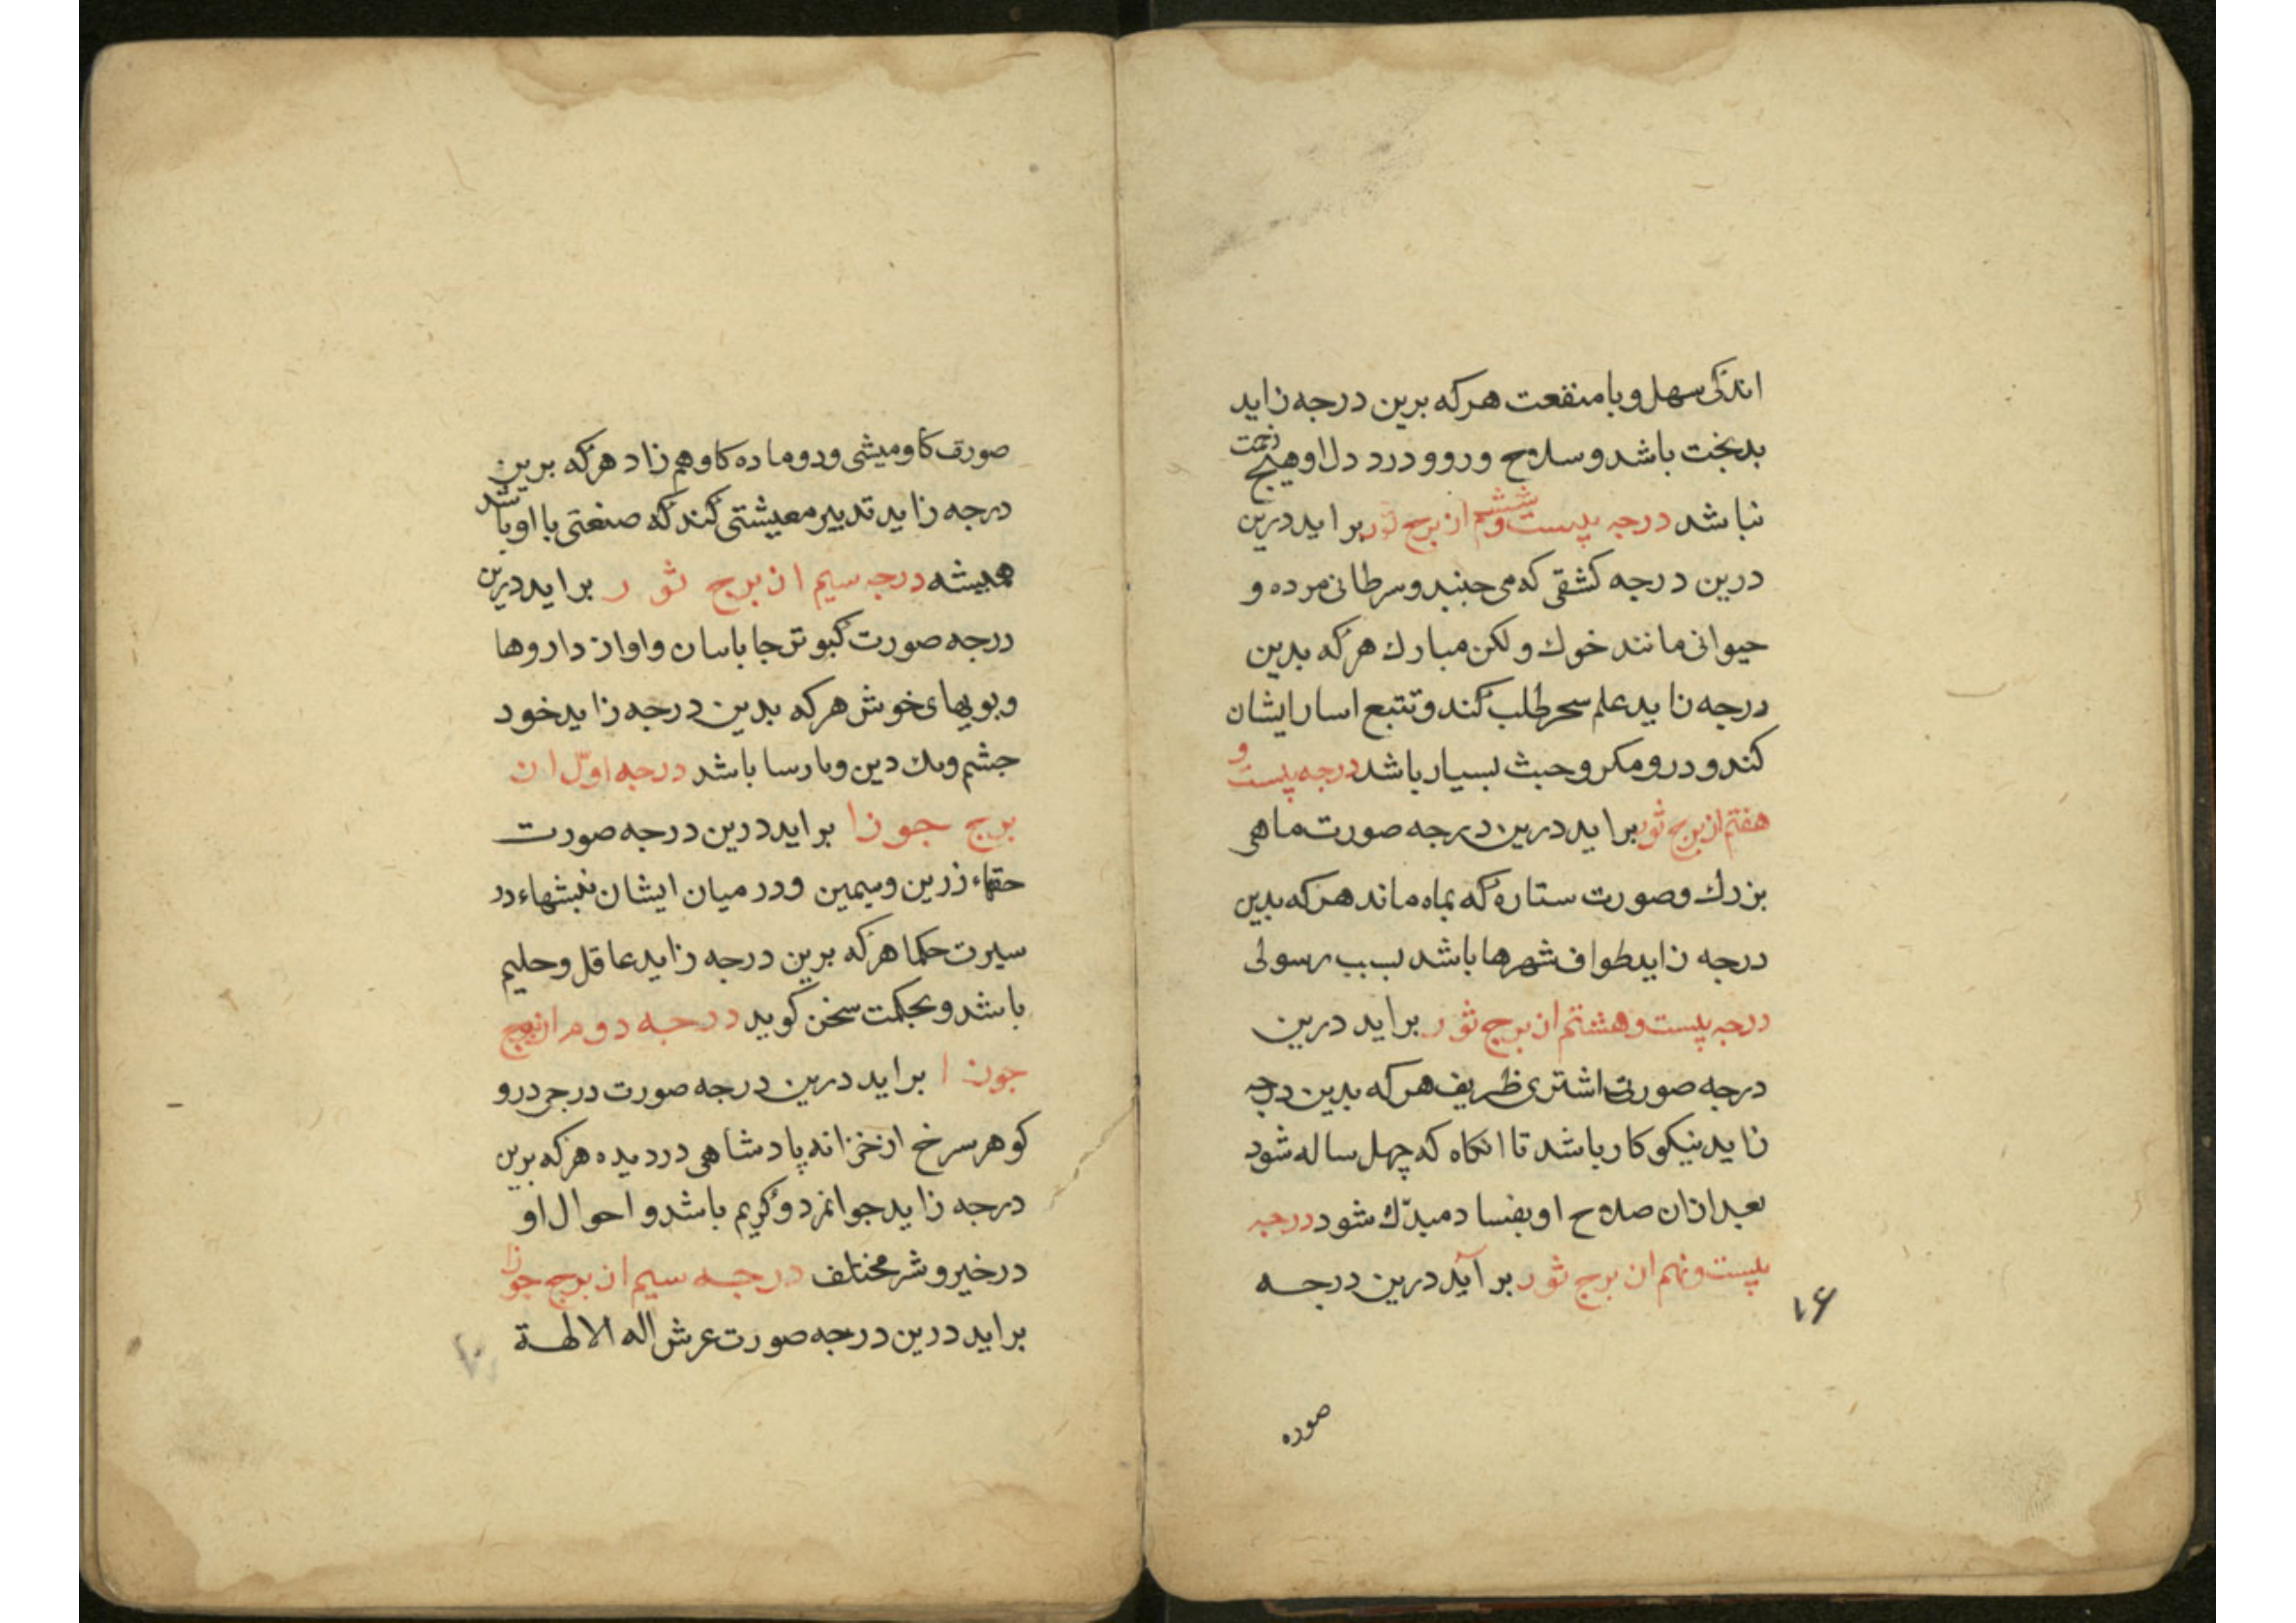 اندکی سهل و با منفعت هرکه برین درجه زاید
بدبخت باشد و سلاح ورود و درد دل او هیچ
نباشد درجه بیست و ششم از برج ثور براید درین
درین درجه کشفی که می جنبد و سرطانی مرده و
حیوانی مانند خوك و لکن مبارك هرکه بدین
درجه زاید علم سحر طلب کند و تتبع اسار ایشان
کند و درو مکر و خبث بسیار باشد درجه بیست و
هفتم از برج ثور براید درین درجه صورت ماهی
بزرك و صورت ستاره که بماه ماند هرکه بدین
درجه زاید طواف شهرها باشد بسبب رسولی
درجه بیست و هشتم از برج ثور براید درین
درجه صورت اشتری ظریف هرکه بدین درجه
زاید نیکو کار باشد تا انکاه که چهل ساله شود
بعد ازان صلاح او بفساد مبدّل شود درجه
بیست و نهم از برج ثور برآید درین درجه
۱۶
صوره
صورت کاومیشی و دو ماده کاو هم زاد هرکه برین
درجه زاید تدبیر معیشتی کند که صنعتی با او باشد
همیشه درجه سیم از برج ثور براید درین
درجه صورت کبوتر جا باسان و اواز داروها
و بویهای خوش هرکه بدین درجه زاید خود
جشم و بك دین و بارسا باشد درجه اوّل از
برج جوزا براید درین درجه صورت
حقهاء زرین و سیمین و در میان ایشان نبشتهاء در
سیرت حکما هرکه برین درجه زاید عاقل و حلیم
باشد و بحکمت سخن کوید درجه دوم از برج
جوزا براید درین درجه صورت درجی درو
کوهر سرخ از خزانه پادشاهی دزدیده هرکه برین
درجه زاید جوانمرد و کریم باشد و احوال او
در خیر و شر مختلف درجه سیم از برج جوزا
براید درین درجه صورت عرش اله الالهة